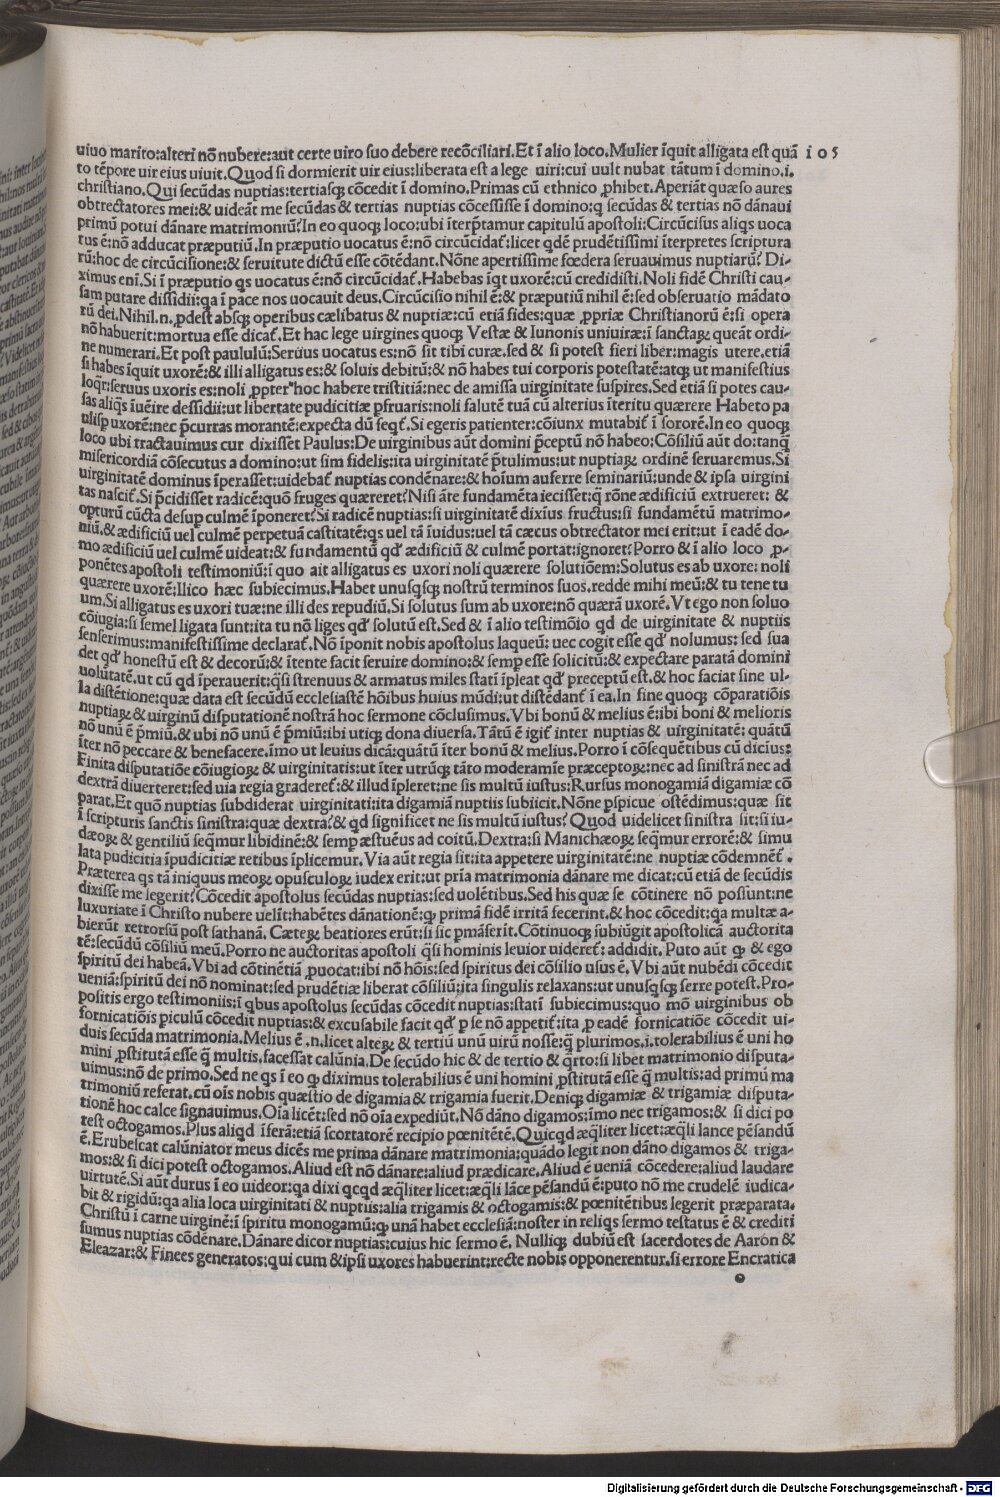 uiuo marito:alteri nō nubere:aut certe uiro suo debere recōciliari.Et ī alio loco.Mulier īquit alligata est quā 105
to tēpore uir eius uiuit.Quod si dormierit uir eius:liberata est a lege uiri:cui uult nubat tātum ī domino.i.
christiano.Qui secūdas nuptias:tertiasqꝫ cōcedit ī domino.Primas cū ethnico ꝓhibet.Aperiāt quæso aures
obtrectatores mei:& uideāt me secūdas & tertias nuptias cōcessisse ī domino:q secūdas & tertias nō dānaui
primū potui dānare matrimoniū?In eo quoqꝫ loco:ubi īterp̄tamur capitulū apostoli:Circūcisus aliqs uoca
tus ē:nō adducat præputiū.In præputio uocatus ē:nō circūcidat̄:licet qdē prudētissimi īterpretes scriptura
rū:hoc de circūcisione:& seruitute dictū esse cōtēdant.Nōne apertissime fœdera seruauimus nuptiarū?Di-
ximus eni.Si ī præputio qs uocatus ē:nō circūcidat̄.Habebas īqt uxorē:cū credidisti.Noli fidē Christi cau-
sam putare dissidii:qa ī pace nos uocauit deus.Circūcisio nihil ē:& præputiū nihil ē:sed obseruatio mādato
rū dei.Nihil.n.ꝓdest absqꝫ operibus cælibatus & nuptiæ:cū etiā fides:quæ ꝓpriæ Christianorū ē:si opera
nō habuerit:mortua esse dicat̄.Et hac lege uirgines quoqꝫ Vestæ & Iunonis uniuiræ:ī sanctaꝝ queāt ordi-
ne numerari.Et post paululū:Seruus uocatus es:nō sit tibi curæ.sed & si potest fieri liber:magis utere.etiā
si habes īquit uxorē:& illi alligatus es:& soluis debitū:& nō habes tui corporis potestatē:atqꝫ ut manifestius
loqr̄:seruus uxoris es:noli ꝓpter hoc habere tristitiā:nec de amissa uirginitate suspires.Sed etiā si potes cau-
sas aliqs īuēire dessidii:ut libertate pudicitiæ p̱fruaris:noli salutē tuā cū alterius īteritu quærere Habeto pa
ulisp̱ uxorē:nec p̄curras morantē:expecta dū seqt̄.Si egeris patienter:cōiunx mutabit̄ ī sororē.In eo quoqꝫ
loco ubi tractauimus cur dixisset Paulus:De uirginibus aut domini p̄ceptū nō habeo:Cōsiliū aūt do:tanq̄
misericordiā cōsecutus a domino:ut sim fidelis:ita uirginitatē p̄tulimus:ut nuptiaꝝ ordinē seruaremus.Si
uirginitatē dominus īperasset:uidebat̄ nuptias condēnare:& hoīum auferre seminariū:unde & ipsa uirgini
tas nascit̄.Si p̄cidisset radicē:quō fruges quæreret?Nisi āre fundamēta iecisset:q̄ rōne ædificiū extrueret: &
opturū cūcta desup culmē īponeret?Si radicē nuptias:si uirginitatē dixīus fructus:si fundamētū matrimo-
niū.& ædificiū uel culmē perpetuā castitatē:qs uel tā īuidus:uel tā cæcus obtrectator mei erit:ut ī eadē do-
mo ædificiū uel culmē uideat:& fundamentū qd' ædificiū & culmē portat:ignoret?Porro & ī alio loco ꝓ-
ponētes apostoli testimoniū:ī quo ait alligatus es uxori noli quærere solutiōem:Solutus es ab uxore: noli
quærere uxorē:Ilico hæc subiecimus.Habet unusqsqꝫ nostrū terminos suos.redde mihi meū:& tu tene tu
um.Si alligatus es uxori tuæ:ne illi des repudiū.Si solutus sum ab uxore:nō quærā uxorē.Vt ego non soluo
cōiugia:si semel ligata sunt:ita tu nō liges qd' solutū est.Sed & ī alio testimōio qd de uirginitate & nuptiis
senserimus:manifestissime declarat̄.Nō īponit nobis apostolus laqueū: uec cogit esse qd' nolumus: sed sua
det qd' honestū est & decorū:& ītente facit seruire domino:& semp̱ esse solicitū:& expectare paratā domini
uolūtatē.ut cū qd īperauerit:q̄si strenuus & armatus miles statī īpleat qd' preceptū est.& hoc faciat sine ul-
la distētione:quæ data est secūdū ecclesiastē hōibus huius mūdi:ut distēdant̄ ī ea.In fine quoqꝫ cōparatiōis
nuptiaꝝ & uirginū disputationē nostrā hoc sermone cōclusimus.Vbi bonū & melius ē:ibi boni & melioris
nō unū ē p̄miū.& ubi nō unū ē p̄miū:ibi utiqꝫ dona diuersa.Tātū ē igit̄ inter nuptias & uirginitatē: quātū
īter nō peccare & benefacere.īmo ut leuius dicā:quātū īter bonū & melius.Porro ī cōsequētibus cū dicīus:
Finita disputatiōe cōiugioꝝ & uirginitatis:ut īter utrūqꝫ tāto moderamīe præceptoꝝ:nec ad sinistrā nec ad
dextrā diuerteret:sed uia regia graderet̄:& illud īpleret:ne sis multū iustus:Rursus monogamiā digamiæ cō
parat.Et quō nuptias subdiderat uirginitati:ita digamiā nuptiis subiicit.Nōne p̱spicue ostēdimus:quæ sit
ī scripturis sanctis sinistra:quæ dextra?& qd significet ne sis multū iustus?Quod uidelicet sinistra sit:si iu-
dæoꝝ & gentiliū seq̄mur libidinē:& semp̱ æstuēus ad coitū.Dextra:si Manichæoꝝ seq̄mur errorē:& simu
lata pudicitia īpudicitiæ retibus īplicemur.Via aūt regia sit:ita appetere uirginitatē:ne nuptiæ cōdemnēt̄.
Præterea qs tā iniquus meoꝝ opusculoꝝ iudex erit:ut prīa matrimonia dānare me dicat:cū etiā de secūdis
dixisse me legerit?Cōcedit apostolus secūdas nuptias:sed uolētibus.Sed his quæ se cōtinere nō possūnt:ne
luxuriate ī Christo nubere uelīt:habētes dānationē:qꝫ primā fidē irritā fecerint.& hoc cōcedit:qa multæ a-
bierūt retrorsū post sathanā. Cæteꝝ beatiores erūt:si sic p̱māserīt.Cōtinuoqꝫ subiūgit apostolicā auctorita
tē:secūdū cōsiliū meū.Porro ne auctoritas apostoli q̄si hominis leuior uideret̄: addidit. Puto aūt qꝫ & ego
spiritū dei habeā.Vbi ad cōtinētiā ꝓuocat:ibi nō hōis:sed spiritus dei cōsilio usus ē.Vbi aūt nubēdi cōcedit
ueniā:spiritū dei nō nominat:sed prudētiæ liberat cōsiliū:ita singulis relaxans:ut unusqsqꝫ ferre potest.Pro-
positis ergo testimoniis:ī qbus apostolus secūdas cōcedit nuptias:statī subiecimus:quo mō uirginibus ob
fornicatiōis p̱iculū cōcedit nuptias:& excusabile facit qd' p̱ se nō appetit̄:ita ꝓ eadē fornicatiōe cōcedit ui-
duis secūda matrimonia.Melius ē.n.licet alteꝝ & tertiū unū uirū nosse:q̄ plurimos.i.tolerabilius ē uni ho
mini ꝓstitutā esse q̄ multis.facessat calūnia.De secūdo hic & de tertio & q̄rto:si libet matrimonio disputa-
uimus:nō de primo.Sed ne qs ī eo qꝫ diximus tolerabilius ē uni homini ꝓstitutā esse q̄ multis:ad primū ma
trimoniū referat.cū oīs nobis quæstio de digamia & trigamia fuerit.Deniqꝫ digamiæ & trigamiæ disputa-
tionē hoc calce signauimus.Oīa licēt:sed nō oīa expediūt.Nō dāno digamos:īmo nec trigamos:& si dici po
test octogamos.Plus aliqd īferā:etiā scortatorē recipio pœnitētē.Quicqd æq̄liter licet:æq̄li lance pēsandū
ē.Erubescat calūniator meus dicēs me prima dānare matrimonia:quādo legit non dāno digamos & triga-
mos:& si dici potest octogamos.Aliud est nō dānare:aliud prædicare.Aliud ē ueniā cōcedere:aliud laudare
uirtutē.Si aūt durus ī eo uideor:qa dixi qcqd æq̄liter licet:æq̄li lāce pēsandū ē:puto nō me crudelē iudica-
bit & rigidū:qa alia loca uirginitati & nuptiis:alia trigamis & octogamis:& pœnitētibus legerit præparata.
Christū ī carne uirginē:ī spiritu monogamū:qꝫ unā habet ecclesiā:noster in reliqs sermo testatus ē & crediti
sumus nuptias cōdēnare.Dānare dicor nuptias:cuius hic sermo ē. Nulliqꝫ dubiū est sacerdotes de Aarōn &
Eleazar:& Finees generatos:qui cum & ipsi uxores habuerint:recte nobis opponerentur.si errore Encratica
Digitalisierung gefördert durch die Deutsche Forschungsgemeinschaft - DFG